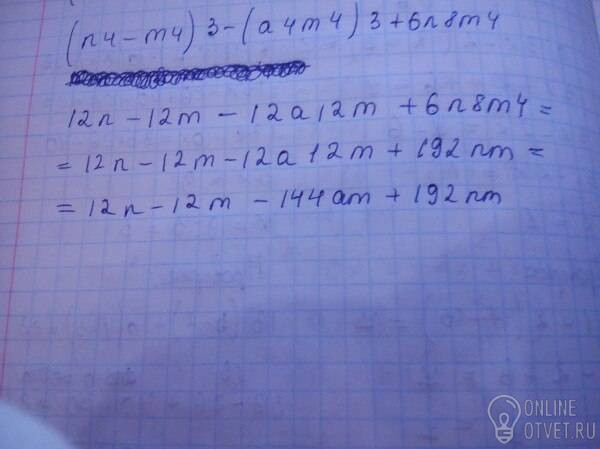 (n4-m4)3-(a4m4)3+6n8m4
12n-12m-12a12m+6n8m4=
=12n-12m-12a12m+192nm=
=12n-12m-144am+192nm
ONLINE
OTVET.RU